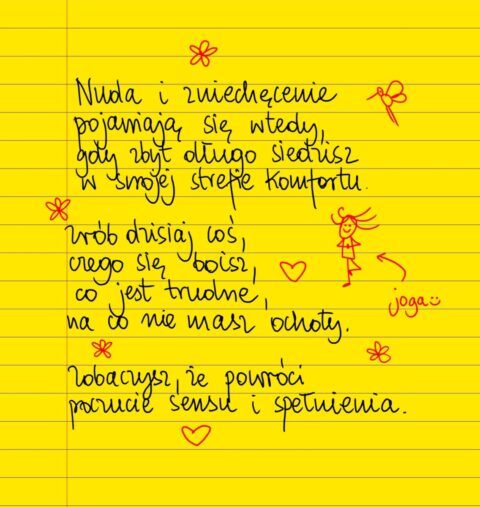 Nuda i zniechęcenie
pojawiają się wtedy,
gdy zbyt długo siedzisz
w swojej strefie komfortu.
zrób dzisiaj coś,
czego się boisz,
co jest trudne,
na co nie masz ochoty.
joga
zobaczysz, że powróci
poczucie sensu i spełnienia.